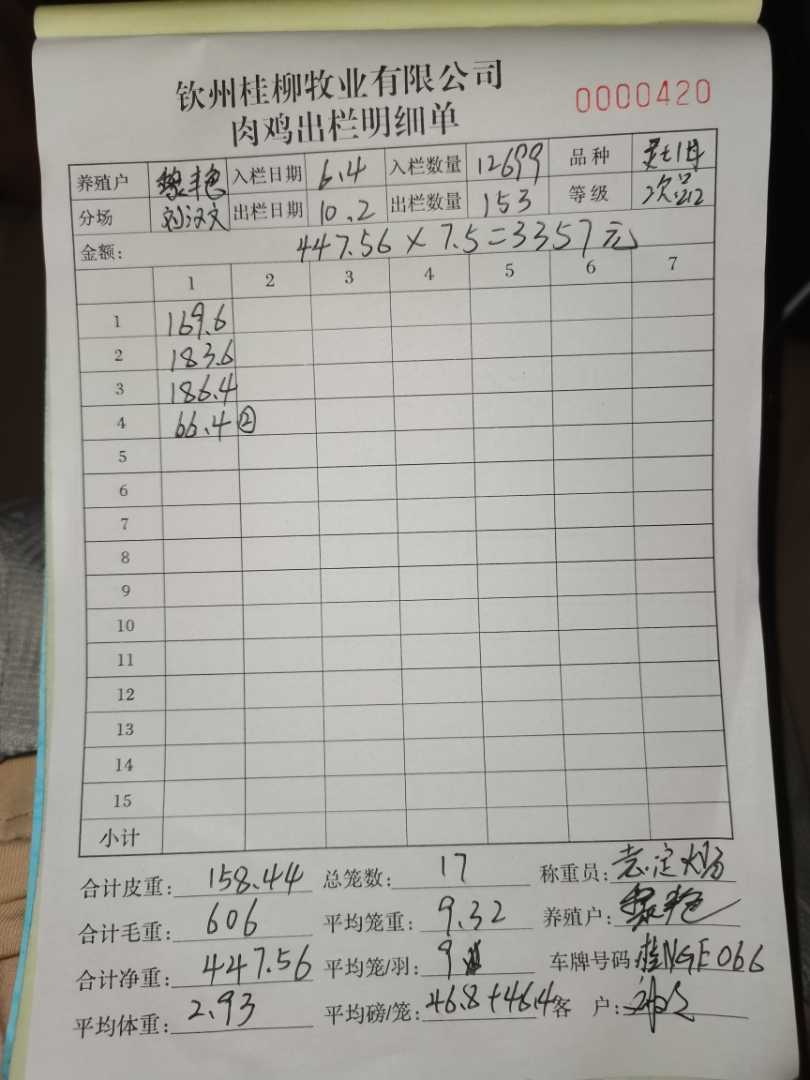 钦州桂柳牧业有限公司
0000420
肉鸡出栏明细单
养殖户 入栏日期 6.4 入栏数量 12699 品种
分场 刘汉文 出栏日期 10.2 出栏数量 153 等级 次品
金额: 447.56 × 7.5 = 3357元
1 2 3 4 5 6 7
1 169.6
2 183.6
3 186.4
4 66.4 ②
5
6
7
8
9
10
11
12
13
14
15
小计
合计皮重: 158.44 总笼数: 17 称重员:
合计毛重: 606 平均笼重: 9.32 养殖户:
合计净重: 447.56 平均笼/羽: 9 车牌号码: 桂NGE066
平均体重: 2.93 平均磅/笼: 46.8+46.4 客 户: